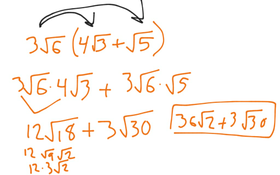 3√6 (4√3 + √5)
3√6 · 4√3 + 3√6 · √5
12√18 + 3√30
36√2 + 3√30
12 √9 √2
12 · 3√2